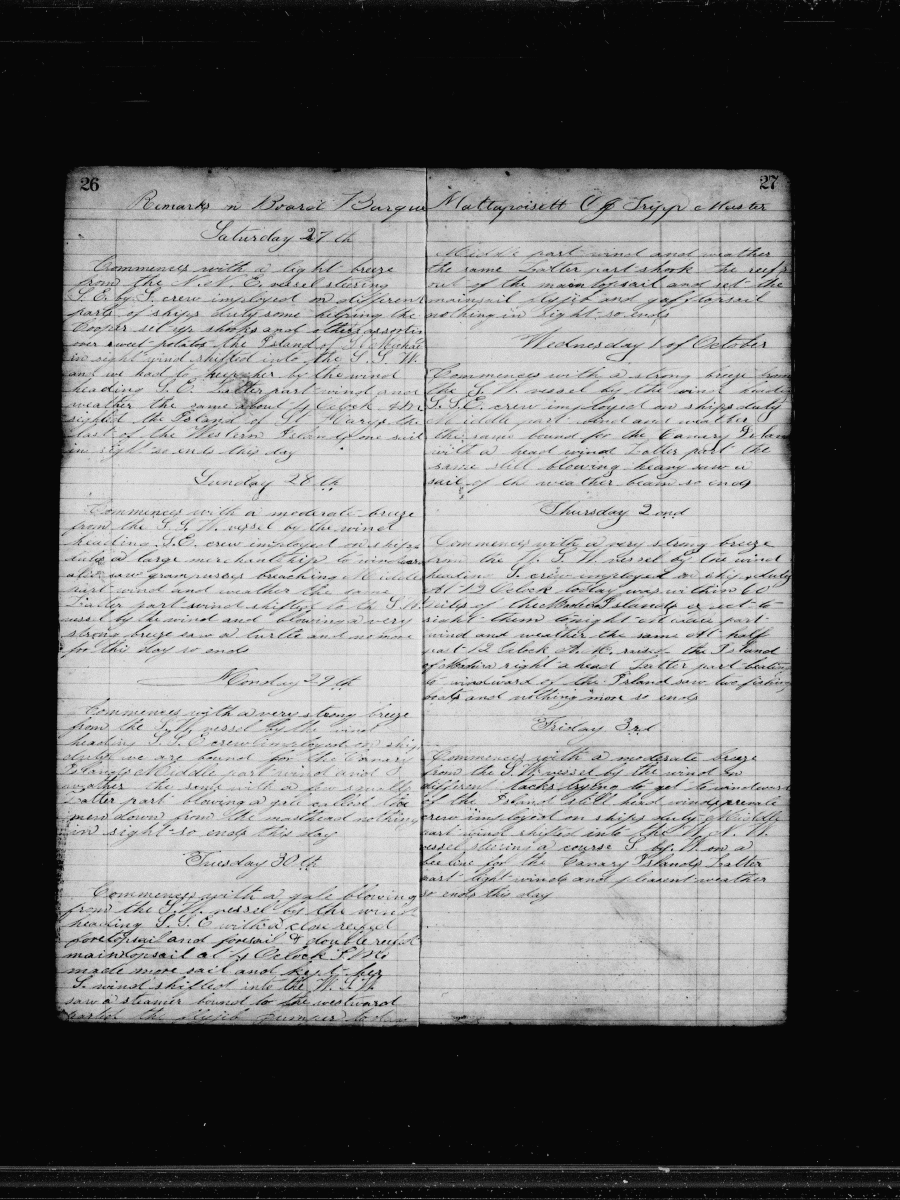 26
Remarks on Board Barque
Saturday 27 th
Commences with a light breeze
from the N. E. vessel steering
S. E. by S. crew imployed on different
parts of ships duty some helping the
Cooper set up shooks and others
over sweet potatos the Island of St
in sight wind shifted into the S. S. W.
and we had to keep her by the wind
heading S. E. Latter part wind and
weather the same about Oclock
sighted the Island of St Marys the
last of the Western Islands one sail
in sight so ends this day
Sunday 28 th
Commences with a moderate breeze
from the S. S. W. vessel by the wind
heading S. E. crew imployed on ships
duty a large merchantship to windward
also saw grampuses breaching Middle
part wind and weather the same
Latter part wind shifted to the S. W.
vessel by the wind and blowing a very
strong breeze saw a turtle and no more
for this day so ends
Monday 29 th
Commences with a very strong breeze
from the S. W. vessel by the wind
heading S. S. E. crew imployed on ship
duty we are bound for the Canary
Islands Middle part wind and
weather the same with a few squalls
Latter part blowing a gale called the
men down from the masthead nothing
in sight so ends this day
Tuesday 30 th
Commences with a gale blowing
from the S. W. vessel by the wind
heading S. S. E. with a close reefed
foretopsail and foresail & double reefed
maintopsail at 4 Oclock P. M.
made more sail and kept her
S. wind shifted into the W. S. W.
saw a steamer bound to the westward
the flyjib to day
27
Mattapoisett Tripp Master
Middle part wind and weather
the same Latter part shook the reefs
out of the maintopsail and set the
mainsail flyjib and gafftopsail
nothing in sight so ends
Wednesday 1 of October
Commences with a strong breeze from
the S. W. vessel by the wind heading
S. S. E. crew imployed on ships duty
Middle part wind and weather
the same bound for the Canary Islands
with a head wind Latter part the
same still blowing heavy saw a
sail of the weather beam so ends
Thursday 2 ond
Commences with a very strong breeze
from the W. S. W. vessel by the wind
heading S. crew employed on ships duty
At 12 Oclock today was within 60
miles of the Madeira Islands expect to
sight them tonight Middle part
wind and weather the same At half
past 12 Oclock A. M. raised the Island
of Madeira right ahead Latter part beating
to windward of the Island saw two fishing
boats and nothing more so ends
Friday 3rd
Commences with a moderate breeze
from the S. W. vessel by the wind on
differen tacks trying to get to windward
of the Island still head winds prevail
crew imployed on ships duty Middle
part wind shifted into the W. N. W.
vessel steering a course S. by W. on a
bee line for the Canary Islands Latter
part light winds and pleasent weather
so ends this day